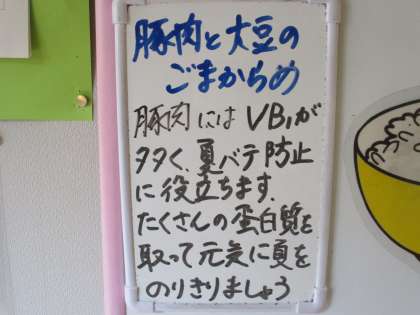 豚肉と大豆の
ごまからめ
豚肉にはVB₁が
多く、夏バテ防止
に役立ちます。
たくさんの蛋白質を
取って元気に夏を
のりきりましょう